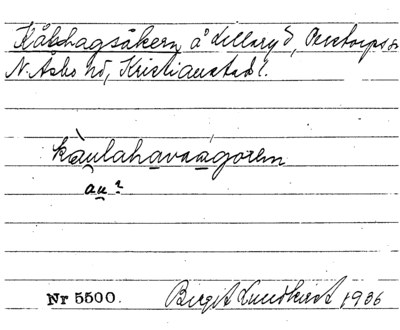 Kålhagsåkern å Lillaryd, Perstorps sn
N. Åsbo hd, Kristianstads l.
kàulahavaagorem
au?
Nr 5500. Birgit Lundkvist 1936